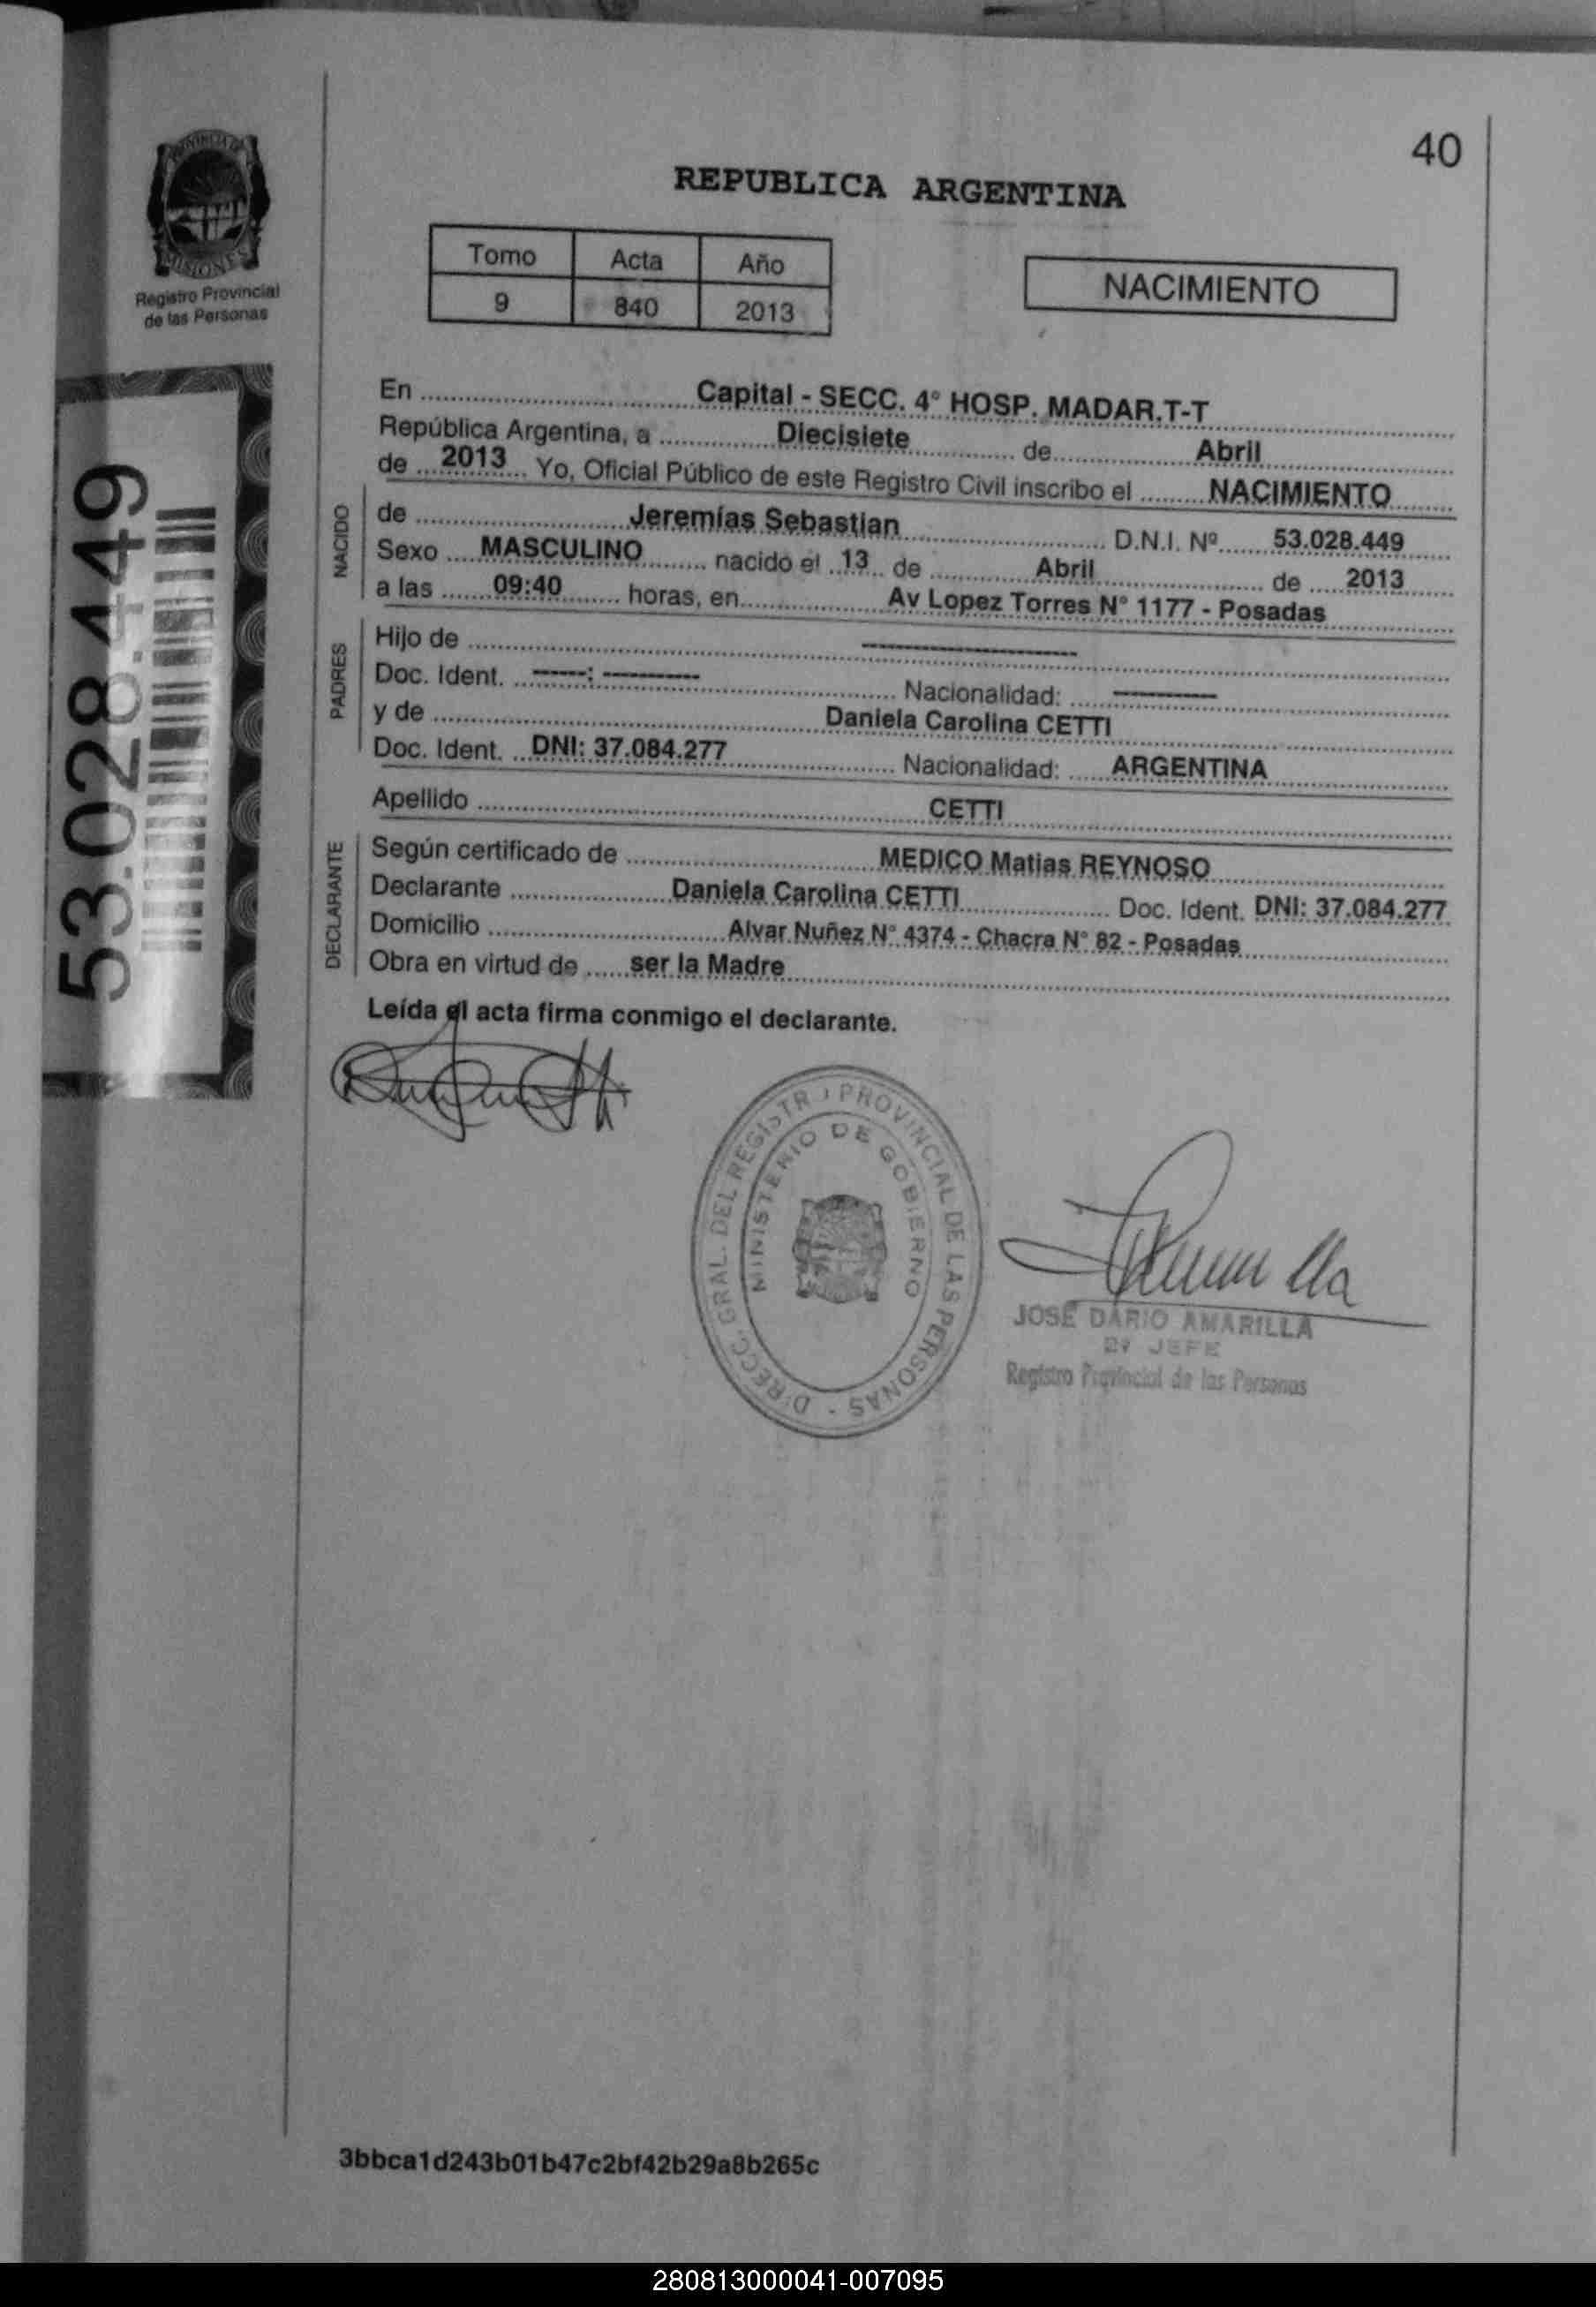 40
PROVINCIA DE
MISIONES
Registro Provincial
de las Personas
REPUBLICA ARGENTINA
Tomo Acta Año
9 840 2013
NACIMIENTO
53.028.449
En Capital - SECC. 4° HOSP. MADAR.T-T
República Argentina, a Diecisiete de Abril
de 2013 Yo, Oficial Público de este Registro Civil inscribo el NACIMIENTO
NACIDO
de Jeremías Sebastian D.N.I. Nº 53.028.449
Sexo MASCULINO nacido el 13 de Abril de 2013
a las 09:40 horas, en Av Lopez Torres N° 1177 - Posadas
PADRES
Hijo de ----------
Doc. Ident. -----: --------- Nacionalidad: ----------
y de Daniela Carolina CETTI
Doc. Ident. DNI: 37.084.277 Nacionalidad: ARGENTINA
Apellido CETTI
DECLARANTE
Según certificado de MEDICO Matias REYNOSO
Declarante Daniela Carolina CETTI Doc. Ident. DNI: 37.084.277
Domicilio Alvar Nuñez N° 4374 - Chacra N° 82 - Posadas
Obra en virtud de ser la Madre
Leída el acta firma conmigo el declarante.
DIRECC. GRAL. DEL REGISTRO PROVINCIAL DE LAS PERSONAS -
MINISTERIO DE GOBIERNO
JOSE DARIO AMARILLA
JEFE
Registro Provincial de las Personas
3bbca1d243b01b47c2bf42b29a8b265c
280813000041-007095